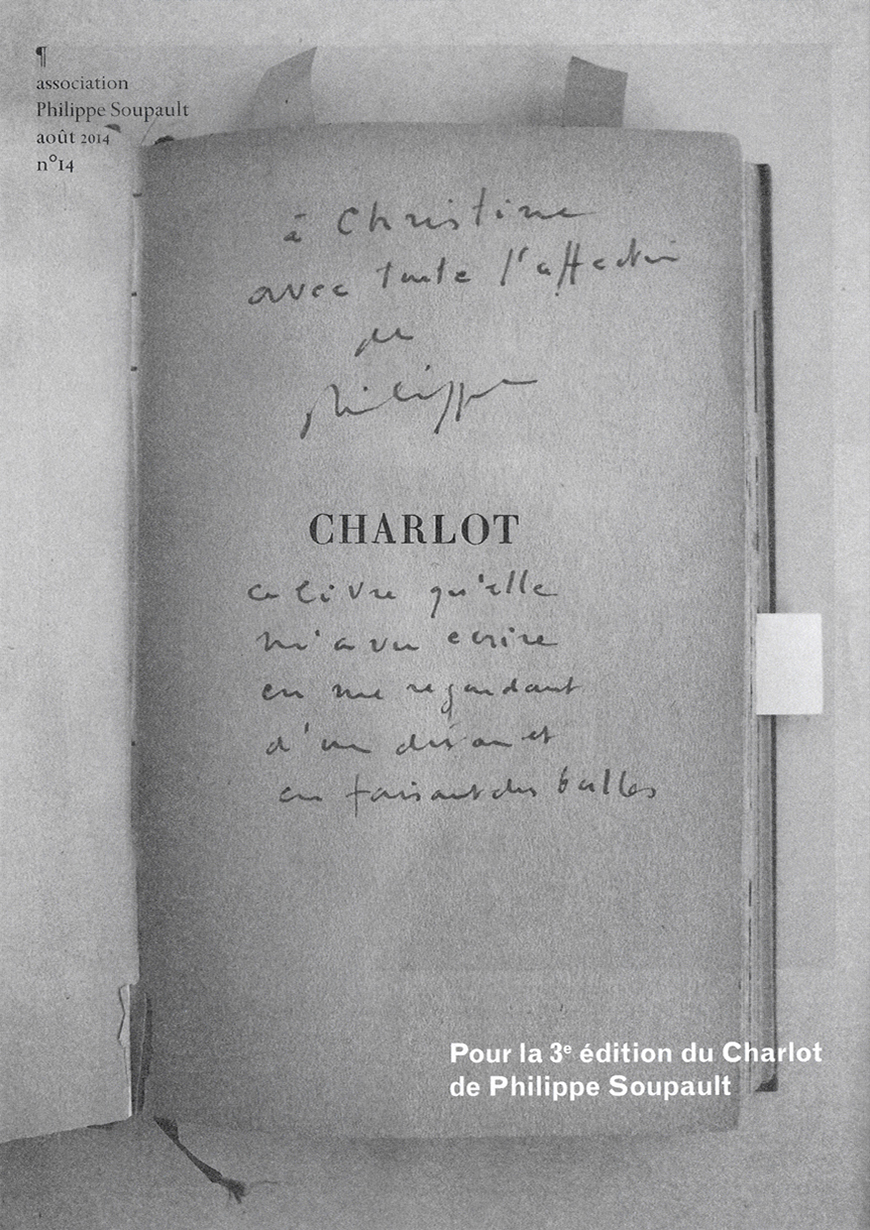 ¶
association
Philippe Soupault
août 2014
n°14
à Christine
avec toute l'affection
de
Philippe
CHARLOT
ce livre qu'elle
m'a vu écrire
en me regardant
d'un divan et
en faisant des bulles
Pour la 3e édition du Charlot
de Philippe Soupault